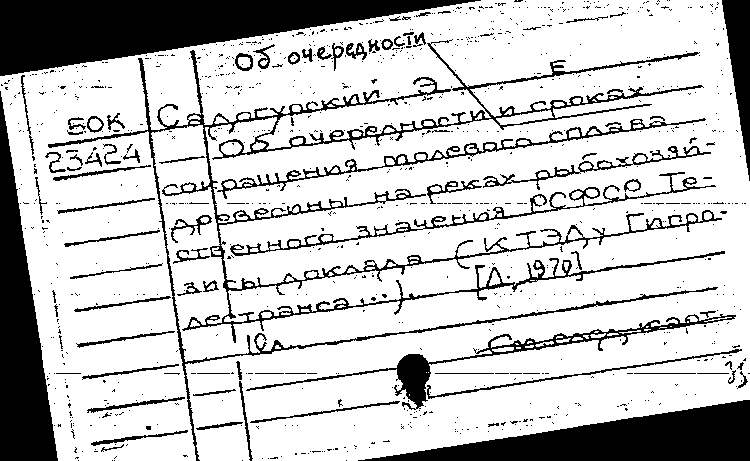 Об очередности
БОК
23424
Садогурский, Э. Е
Об очередности и сроках
сокращения молевого сплава
древесины на реках рыбохозяй-
ственного значения РСФСР. Те-
зисы доклада (КТЭДУ Гипро-
лестранса...). [Л., 1970]
10л.
См. след. карт.
35